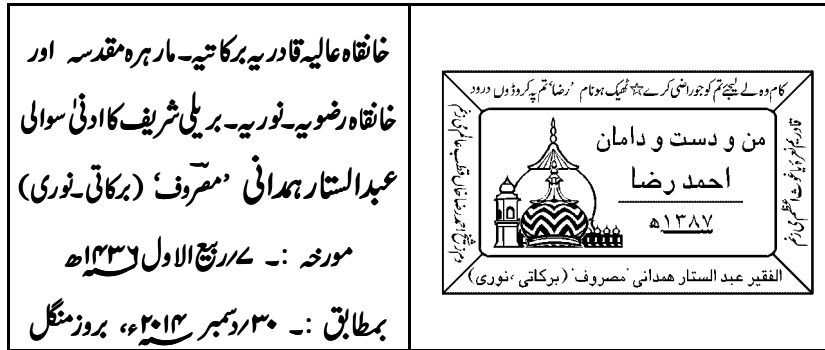 خانقاہ عالیہ قادریہ برکاتیہ۔ مارہرہ مقدسہ اور
خانقاہ رضویہ۔ نوریہ۔ بریلی شریف کا ادنیٰ سوالی
عبدالستار ہمدانی 'مصروف' (برکاتی۔ نوری)
مورخہ :۔ ۷/ربیع الاول ۱۴۳۶ھ
بمطابق :۔ ۳۰/دسمبر ۲۰۱۴ء، بروز منگل
کام وہ لے لیجئے تم کو جو راضی کرے ☆ ٹھیک ہو نام 'رضا' تم پہ کروڑوں درود
قادریم نعرۂ یا غوث اعظم می زنم
من و دست و دامان
احمد رضا
۱۳۸۷ھ
دم ز شیخ احمد رضا خاں قطب عالم می زنم
الفقیر عبد الستار همدانی 'مصروف' (برکاتی، نوری)